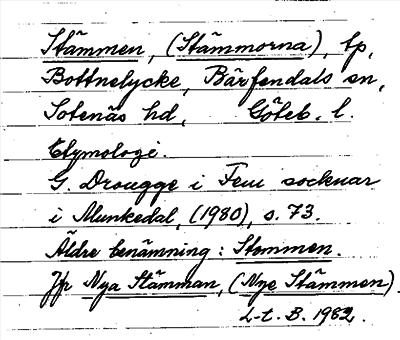 Stämmen, (Stämmorna), tp,
Bottnelycke, Bärfendals sn,
Sotenäs hd, Göteb. l.
Etymologi.
G. Drougge i Fem socknar
i Munkedal, (1980), s. 73.
Äldre benämning: Stommen.
Jfr Nya Stämman, (Nye Stämmen).
L-t. B. 1982.